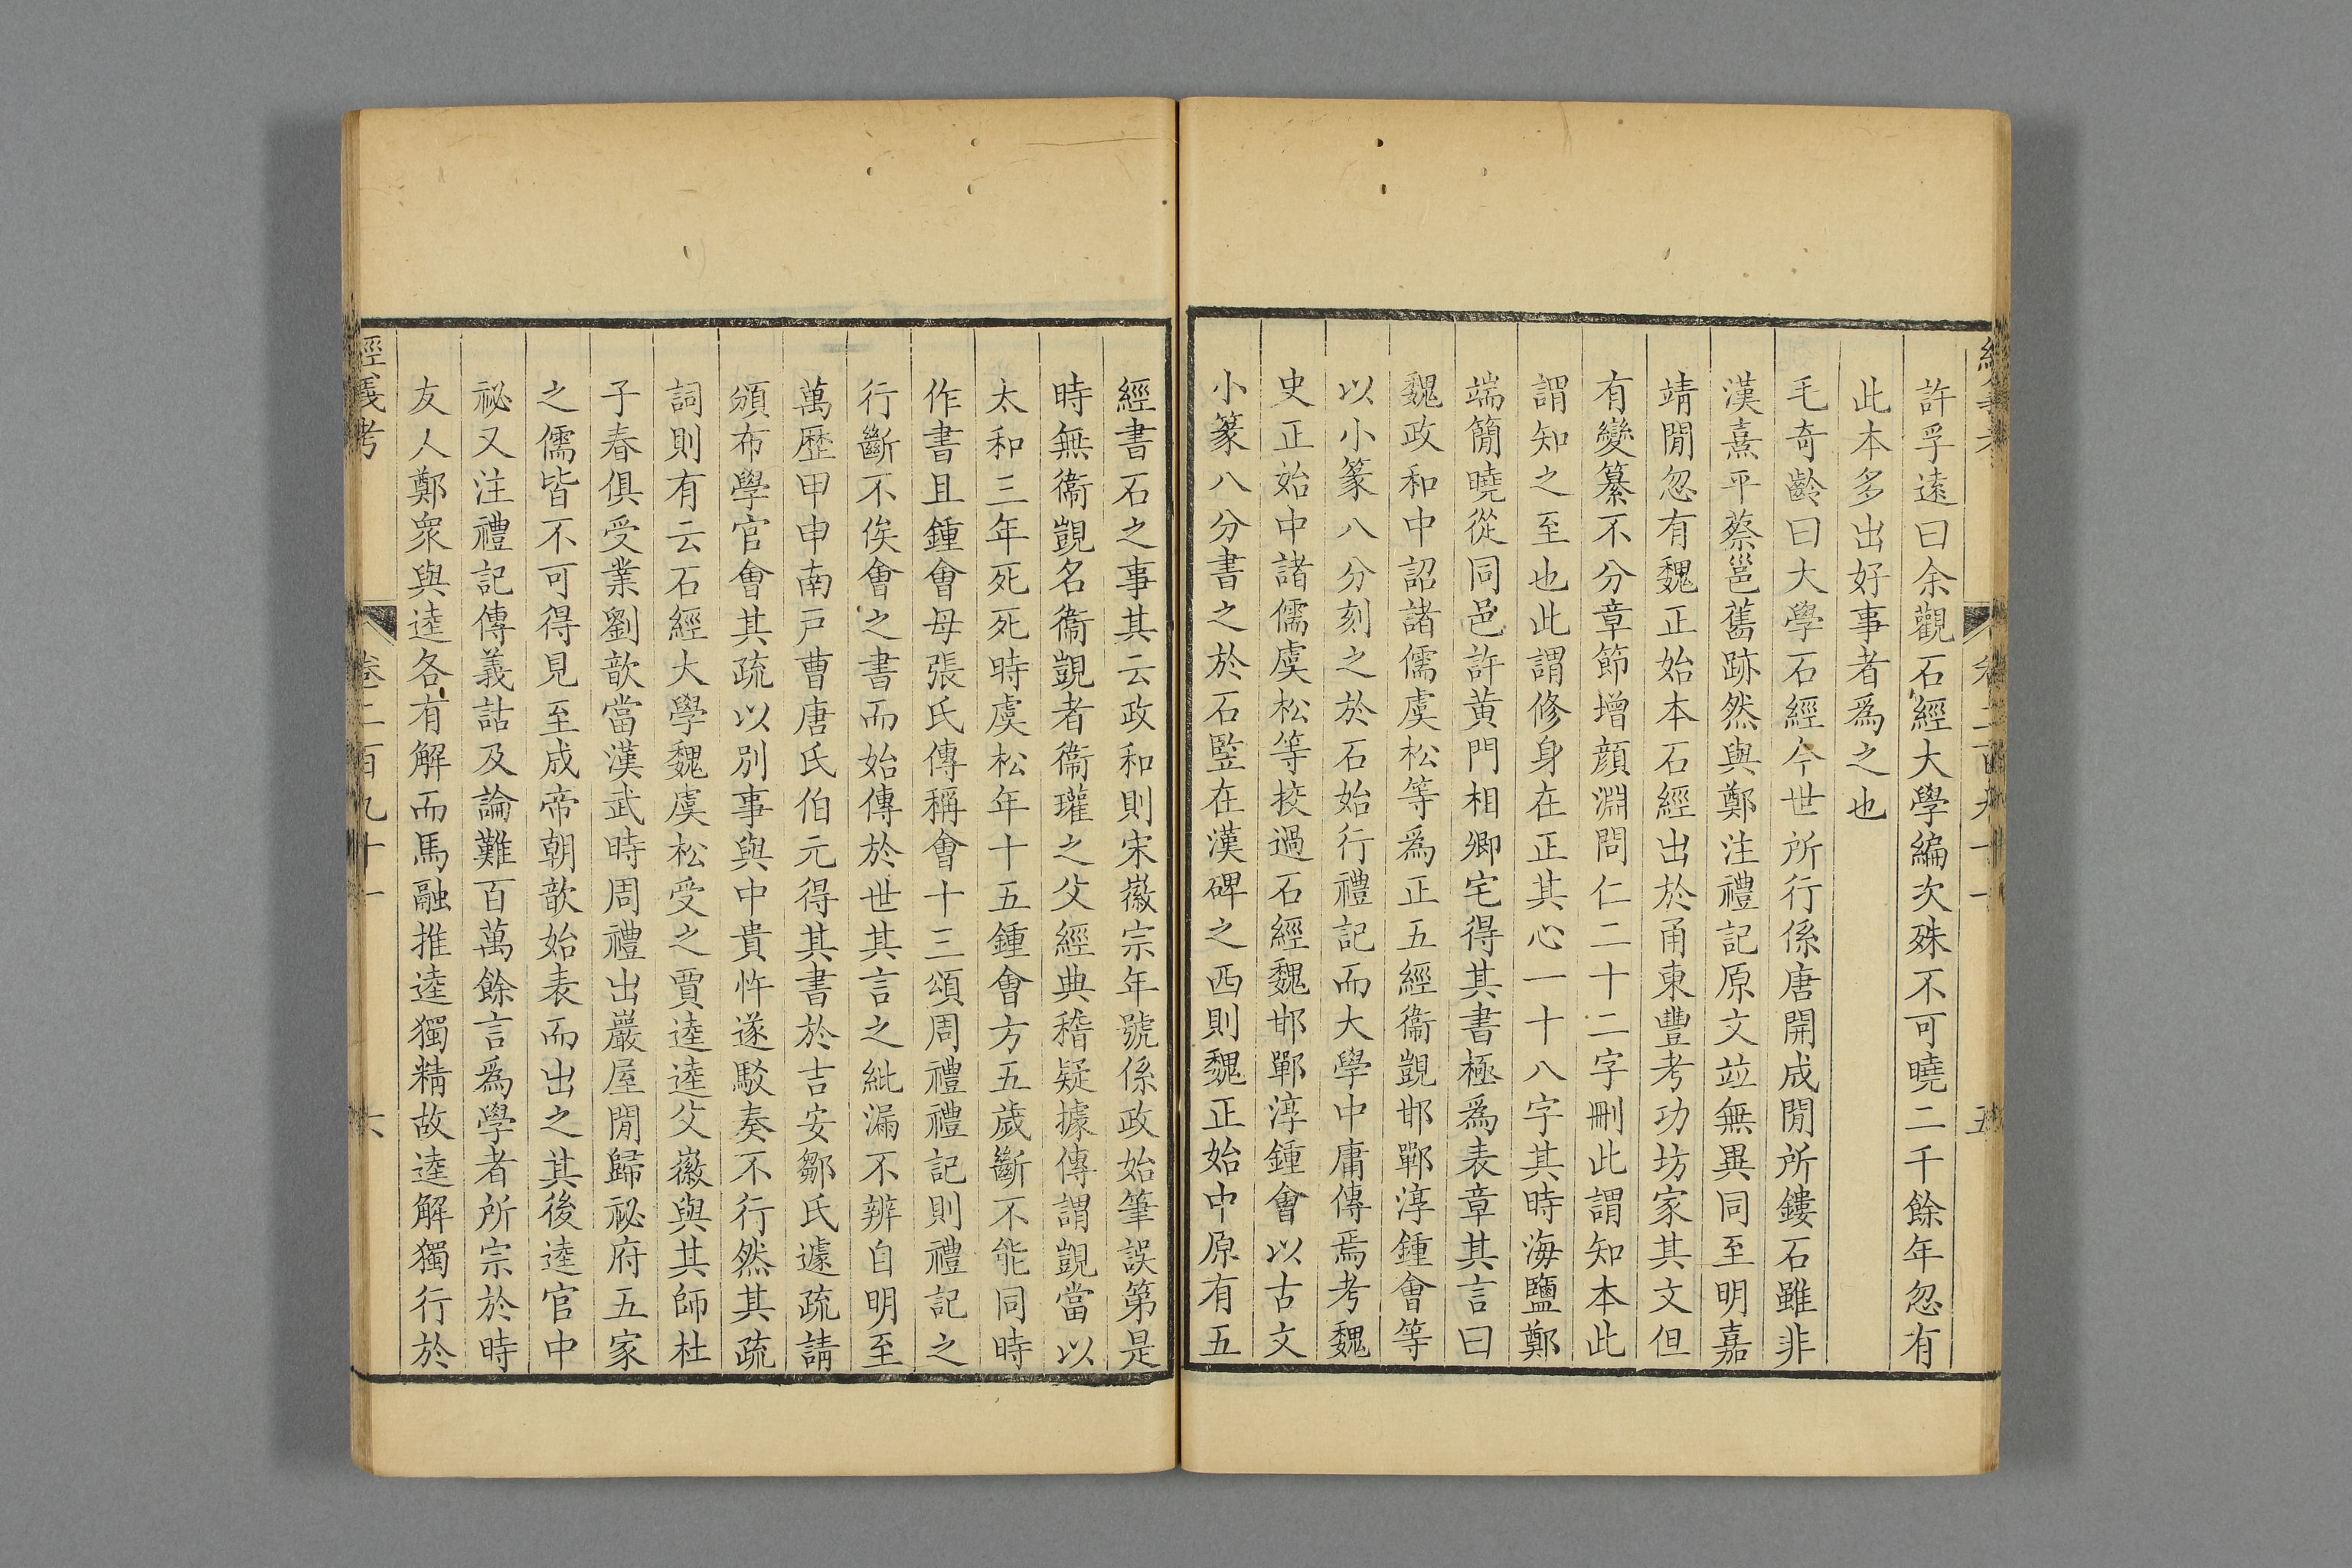 許孚遠曰余觀石經大學編次殊不可曉二千餘年忽有
此本多出好事者爲之也
毛奇齡曰大學石經今世所行係唐開成閒所鏤石雖非
漢熹平蔡邕舊跡然與鄭注禮記原文竝無異同至明嘉
靖閒忽有魏正始本石經出於甬東豐考功坊家其文但
有變纂不分章節增顔淵問仁二十二字刪此謂知本此
謂知之至也此謂修身在正其心一十八字其時海鹽鄭
端簡曉從同邑許黄門相卿宅得其書極爲表章其言曰
魏政和中詔諸儒虞松等爲正五經衞覬邯鄲淳鍾會等
以小篆八分刻之於石始行禮記而大學中庸傳焉考魏
史正始中諸儒虞松等挍過石經魏邯鄲淳鍾會以古文
小篆八分書之於石竪在漢碑之西則魏正始中原有五
經書石之事其云政和則宋徽宗年號係政始筆誤第是
時無衞覬名衞覬者衞瓘之父經典稽疑據傳謂覬當以
太和三年死死時虞松年十五鍾會方五歲斷不能同時
作書且鍾會母張氏傳稱會十三頌周禮禮記則禮記之
行斷不俟會之書而始傳於世其言之紕漏不辨自明至
萬歷甲申南戸曹唐氏伯元得其書於吉安鄒氏遽疏請
頒布學官會其疏以別事與中貴忤遂駁奏不行然其疏
詞則有云石經大學魏虞松受之賈逵逵父徽與其師杜
子春俱受業劉歆當漢武時周禮出巖屋閒歸祕府五家
之儒皆不可得見至成帝朝歆始表而出之其後逵官中
祕又注禮記傳義詁及論難百萬餘言爲學者所宗於時
友人鄭衆與逵各有解而馬融推逵獨精故逵解獨行於
經義考
卷二百九十一
六